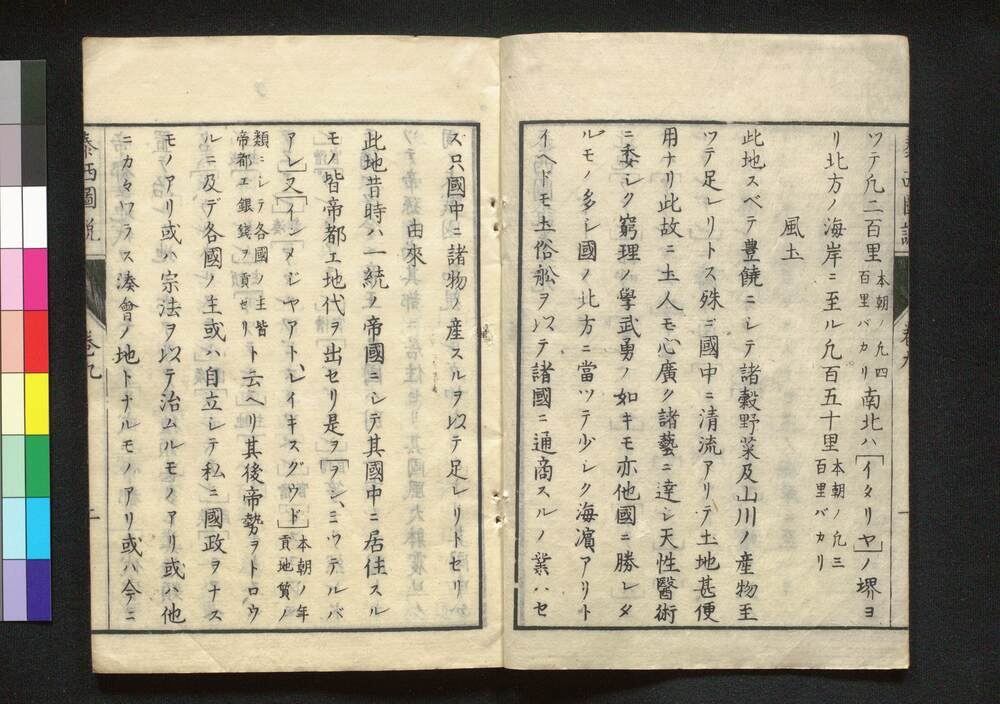 ツテ凢二百里本朝ノ凢四百里バカリ南北ハ[イタリヤ]ノ堺ヨ
リ北方ノ海岸ニ至ル凢百五十里本朝ノ凢三百里バカリ
風土
此地スベテ豊饒ニシテ諸穀野菜及山川ノ産物至
ツテ足レリトス殊ニ國中ニ清流アリテ土地甚便
用ナリ此故ニ土人モ心廣ク諸藝ニ達シ天性醫術
ニ委シク窮理ノ學武勇ノ如キモ亦他國ニ勝レタ
ルモノ多シ國ノ北方ニ當ツテ少シク海濵アリト
イヘドモ土俗舩ヲ以テ諸國ニ通商スルノ業ハセ
ズ只國中ニ諸物ノ産スルヲ以テ足レリトセリ
由來
此地昔時ハ一統ノ帝國ニシテ其國中ニ居住スル
モノ皆帝都エ地代ヲ出セリ是ヲ[ヲンミウテルバ
アレ]又[インヌジヤアトレイキスグウド]本朝ノ年貢地質ノ
類ニシテ各國ノ主皆帝都エ銀錢ヲ貢セリト云ヘリ其後帝勢ヲトロウ
ルニ及デ各國ノ主或ハ自立シテ私ニ國政ヲナス
モノアリ或ハ宗法ヲ以テ治ムルモノアリ或ハ他
ニカヽワラス湊會ノ地トナルモノアリ或ハ今ニ
泰西圖說
卷九